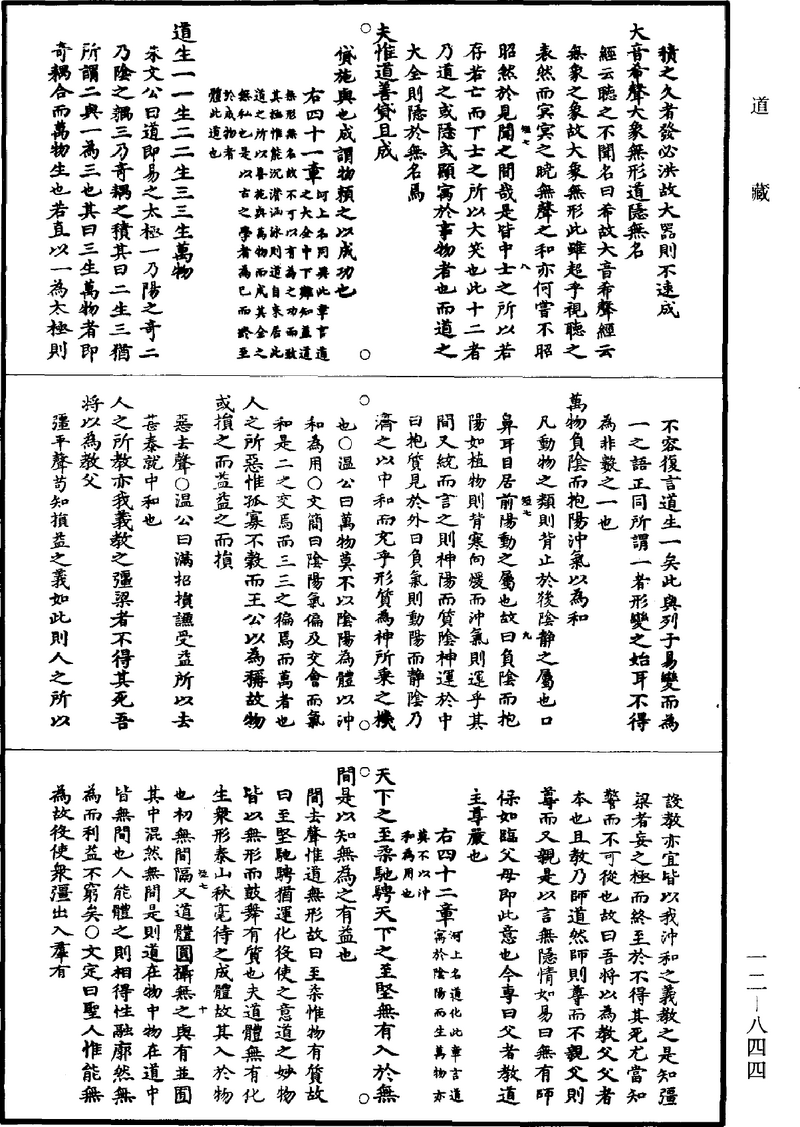 道藏
積之久者發必洪故大器則不速成
大音希聲大象無形道隱無名
經云聽之不聞名曰希故大音希聲經云
無象之象故大象無形此雖超乎視聽之
表然而冥冥之晥無聲之和亦何嘗不昭
昭然於見聞之間哉是皆中士之所以若
短七
八
存若亡而下士之所以大笑也此十二者
乃道之或隱或顯寓於事物者也而道之
大全則隱於無名焉
夫惟道善貸且成
貸施與也成謂物賴之以成功也
右四十一章
河上名同異此章言道
之大全中下難知蓋道
無形無名故不可以有為之功而致
其極惟能沉潛涵泳則道自來居此
道之所以善施與萬物而成其全之
無私也是以古之學者為己而終至
於成物者
體此道也
道生一一生二二生三三生萬物
朱文公曰道即易之太極一乃陽之奇二
乃陰之耦三乃奇耦之積其曰二生三猶
所謂二與一為三也其曰三生萬物者即
奇耦合而萬物生也若直以一為太極則
不容復言道生一矣此與列子易變而為
一之語正同所謂一者形變之始耳不得
為非數之一也
萬物負陰而抱陽沖氣以為和
凡動物之類則背止於後陰靜之屬也口
鼻耳目居前陽動之屬也故曰負陰而抱
短七
九
陽如植物則背寒向煖而沖氣則運乎其
間又統而言之則神陽而質陰神運於中
曰抱質見於外曰負氣則動陽而靜陰乃
濟之以中和而充乎形質為神所乘之機
也○溫公曰萬物莫不以陰陽為體以沖
和為用○文簡曰陰陽氣偏及交會而氣
和是二之交焉而三三之徧焉而萬者也
人之所惡惟孤寡不穀而王公以為稱故物
或損之而益益之而損
惡去聲○溫公曰滿招損謙受益所以去
甚泰就中和也
人之所教亦我義教之彊梁者不得其死吾
將以為教父
彊平聲苟知損益之義如此則人之所以
設教亦宜皆以我沖和之義教之是知彊
梁者妄之極而終至於不得其死尤當知
警而不可從也故曰吾將以為教父父者
本也且教乃師道然師則尊而不親父則
尊而又親是以言無隱情如易曰無有師
保如臨父母即此意也今專曰父者教道
主尊嚴也
右四十二章
河上名道化此章言道
寓於陰陽而生萬物亦
莫不以沖
和為用也
天下之至柔馳騁天下之至堅無有入於無
間是以知無為之有益也
間去聲惟道無形故曰至柔惟物有質故
曰至堅馳騁猶運化役使之意道之妙物
皆以無形而鼓舞有質也夫道體無有化
生衆形泰山秋毫待之成體故其入於物
短七
十
也初無間隔又道體圓攝無之與有並囿
其中混然無間是則道在物中物在道中
皆無間也人能體之則相得性融廓然無
為而利益不窮矣○文定曰聖人惟能無
為故役使衆彊出入羣有
一二—八四四